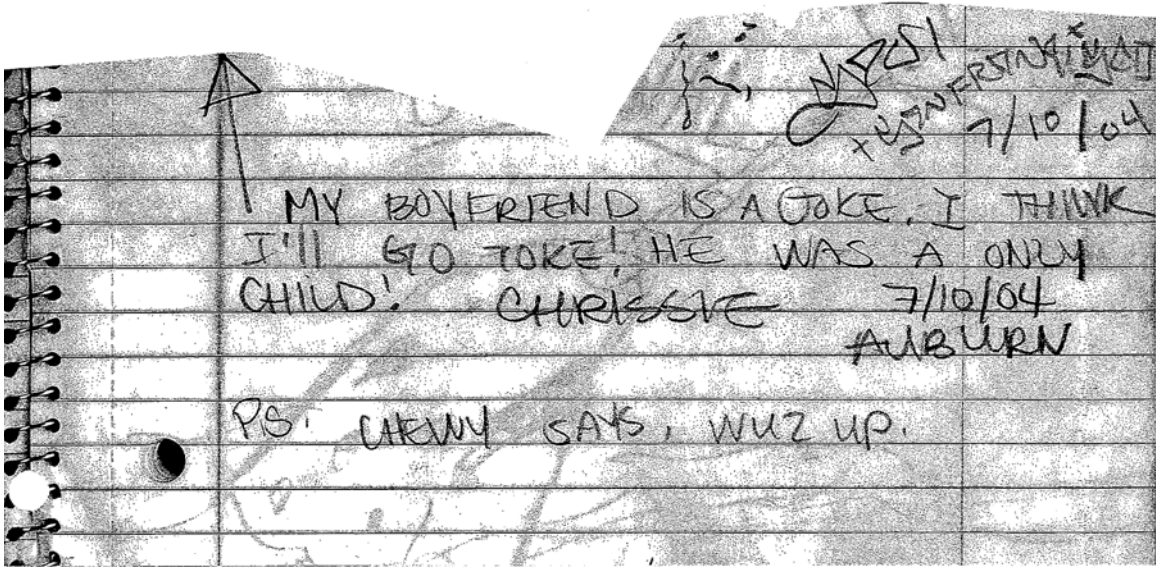 7/10/04
MY BOYFRIEND IS A JOKE. I THINK
I'll GO TOKE! HE WAS A ONLY
CHILD! CHRISSIE 7/10/04
AUBURN
P.S. CHEWY SAYS, WUZ UP.